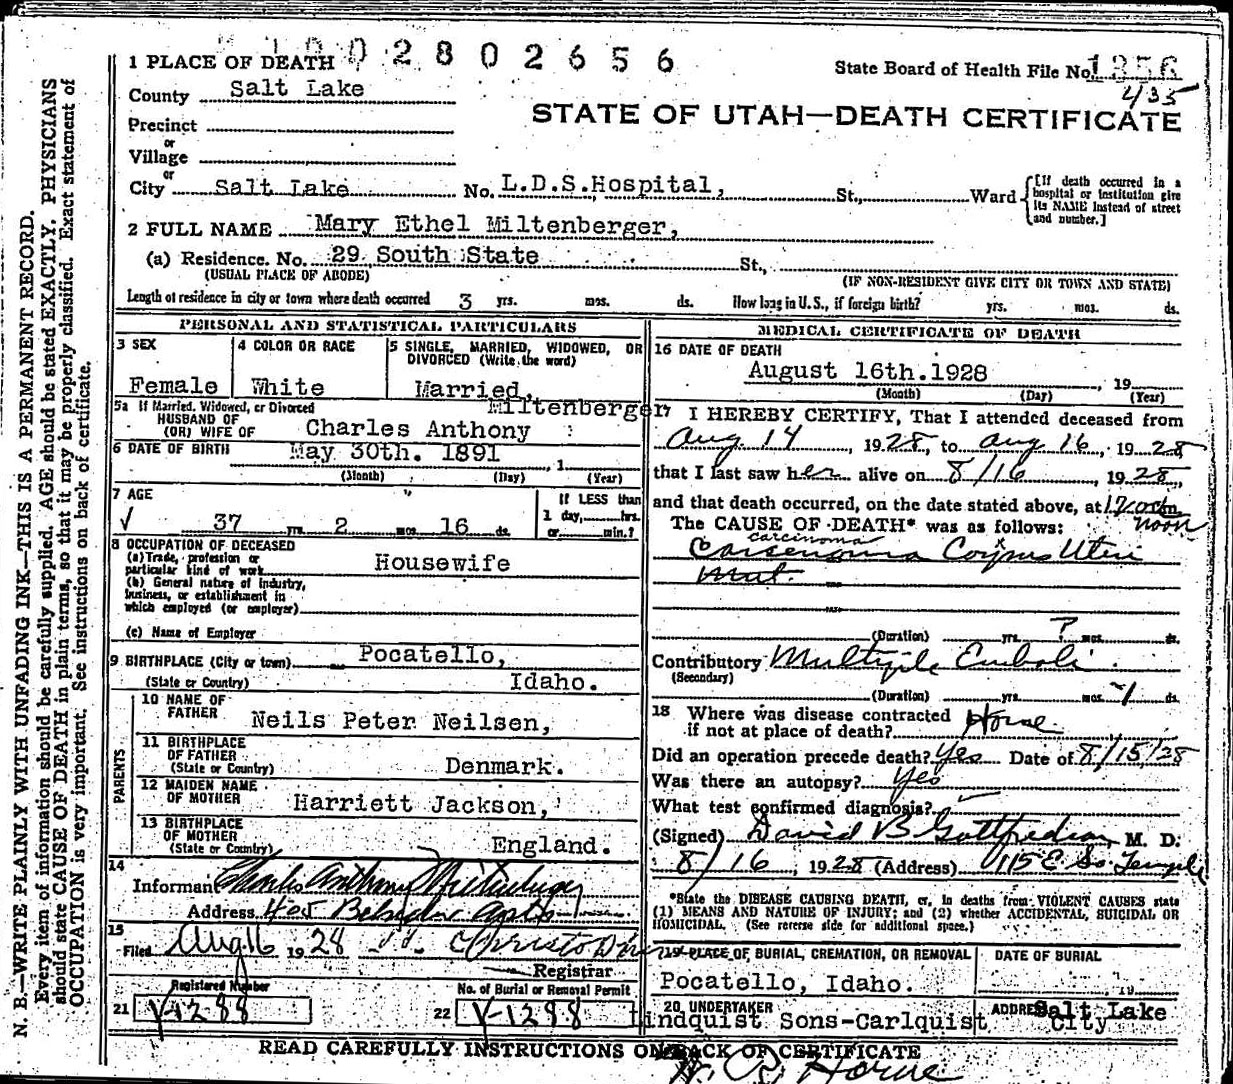 1 PLACE OF DEATH 002802656
State Board of Health File No. 1356
435
County Salt Lake
STATE OF UTAH—DEATH CERTIFICATE
Precinct
or
Village
or
City Salt Lake No. L.D.S.Hospital, St., Ward
[If death occurred in a hospital or institution give its NAME instead of street and number.]
2 FULL NAME Mary Ethel Miltenberger,
(a) Residence. No. 29 South State St.,
(USUAL PLACE OF ABODE) (IF NON-RESIDENT GIVE CITY OR TOWN AND STATE)
Length of residence in city or town where death occurred 3 yrs. mos. ds. How long in U.S., if foreign birth? yrs. mos. ds.
PERSONAL AND STATISTICAL PARTICULARS
3 SEX
Female
4 COLOR OR RACE
White
5 SINGLE, MARRIED, WIDOWED, OR
DIVORCED (Write the word)
Married,
5a If Married, Widowed, or Divorced
HUSBAND OF
(OR) WIFE OF Charles Anthony Miltenberger
6 DATE OF BIRTH May 30th. 1891 , 1
(Month) (Day) (Year)
7 AGE
√ 37 yrs. 2 mos. 16 ds.
If LESS than
1 day, hrs.
or min.?
8 OCCUPATION OF DECEASED
(a) Trade, profession or
particular kind of work Housewife
(b) General nature of industry,
business, or establishment in
which employed (or employer)
(c) Name of Employer
9 BIRTHPLACE (City or town) Pocatello,
(State or Country) Idaho.
PARENTS
10 NAME OF
FATHER Neils Peter Neilsen,
11 BIRTHPLACE
OF FATHER
(State or Country) Denmark.
12 MAIDEN NAME
OF MOTHER Harriett Jackson,
13 BIRTHPLACE
OF MOTHER
(State or Country) England.
14
Informant Charles Anthony Miltenberger
Address Belvedere Apts
15
Filed Aug 16 1928
Registrar
Registered Number
21 V-1288
No. of Burial or Removal Permit
22 V-1288
MEDICAL CERTIFICATE OF DEATH
16 DATE OF DEATH
August 16th.1928 , 19
(Month) (Day) (Year)
17 I HEREBY CERTIFY, That I attended deceased from
Aug 14, 1928, to Aug 16, 1928
that I last saw her alive on 8/16, 1928,
and that death occurred, on the date stated above, at 12 noon
The CAUSE OF DEATH* was as follows:
carcinoma
Carsenoma Corpus Uteri
(Duration) yrs. ? mos. ds.
Contributory Multiple Emboli
(Secondary)
(Duration) yrs. mos. 1 ds.
18 Where was disease contracted
if not at place of death? Home
Did an operation precede death? Yes Date of 8/15/28
Was there an autopsy? Yes
What test confirmed diagnosis?
(Signed) David B Gottfredson, M. D.
8/16, 1928 (Address) 115 E So Temple
*State the DISEASE CAUSING DEATH, or, in deaths from VIOLENT CAUSES state
(1) MEANS AND NATURE OF INJURY; and (2) whether ACCIDENTAL, SUICIDAL OR
HOMICIDAL. (See reverse side for additional space.)
19 PLACE OF BURIAL, CREMATION, OR REMOVAL
Pocatello, Idaho.
DATE OF BURIAL
19
20 UNDERTAKER
Lindquist Sons-Carlquist
ADDRESS Salt Lake
City
READ CAREFULLY INSTRUCTIONS ON BACK OF CERTIFICATE
Horne
N. B.—WRITE PLAINLY WITH UNFADING INK—THIS IS A PERMANENT RECORD.
Every item of information should be carefully supplied. AGE should be stated EXACTLY. PHYSICIANS
should state CAUSE OF DEATH in plain terms, so that it may be properly classified. Exact statement of
OCCUPATION is very important. See instructions on back of certificate.